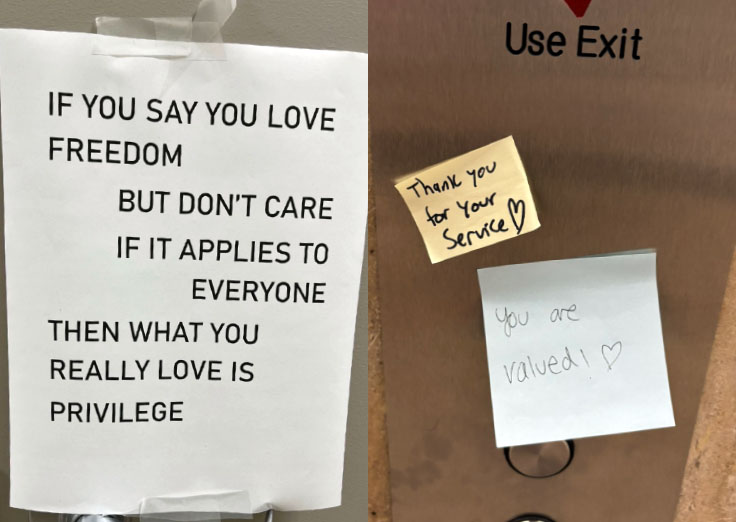 IF YOU SAY YOU LOVE
FREEDOM
BUT DON'T CARE
IF IT APPLIES TO
EVERYONE
THEN WHAT YOU
REALLY LOVE IS
PRIVILEGE
Use Exit
Thank you
for your
Service♡
You are
valued! ♡